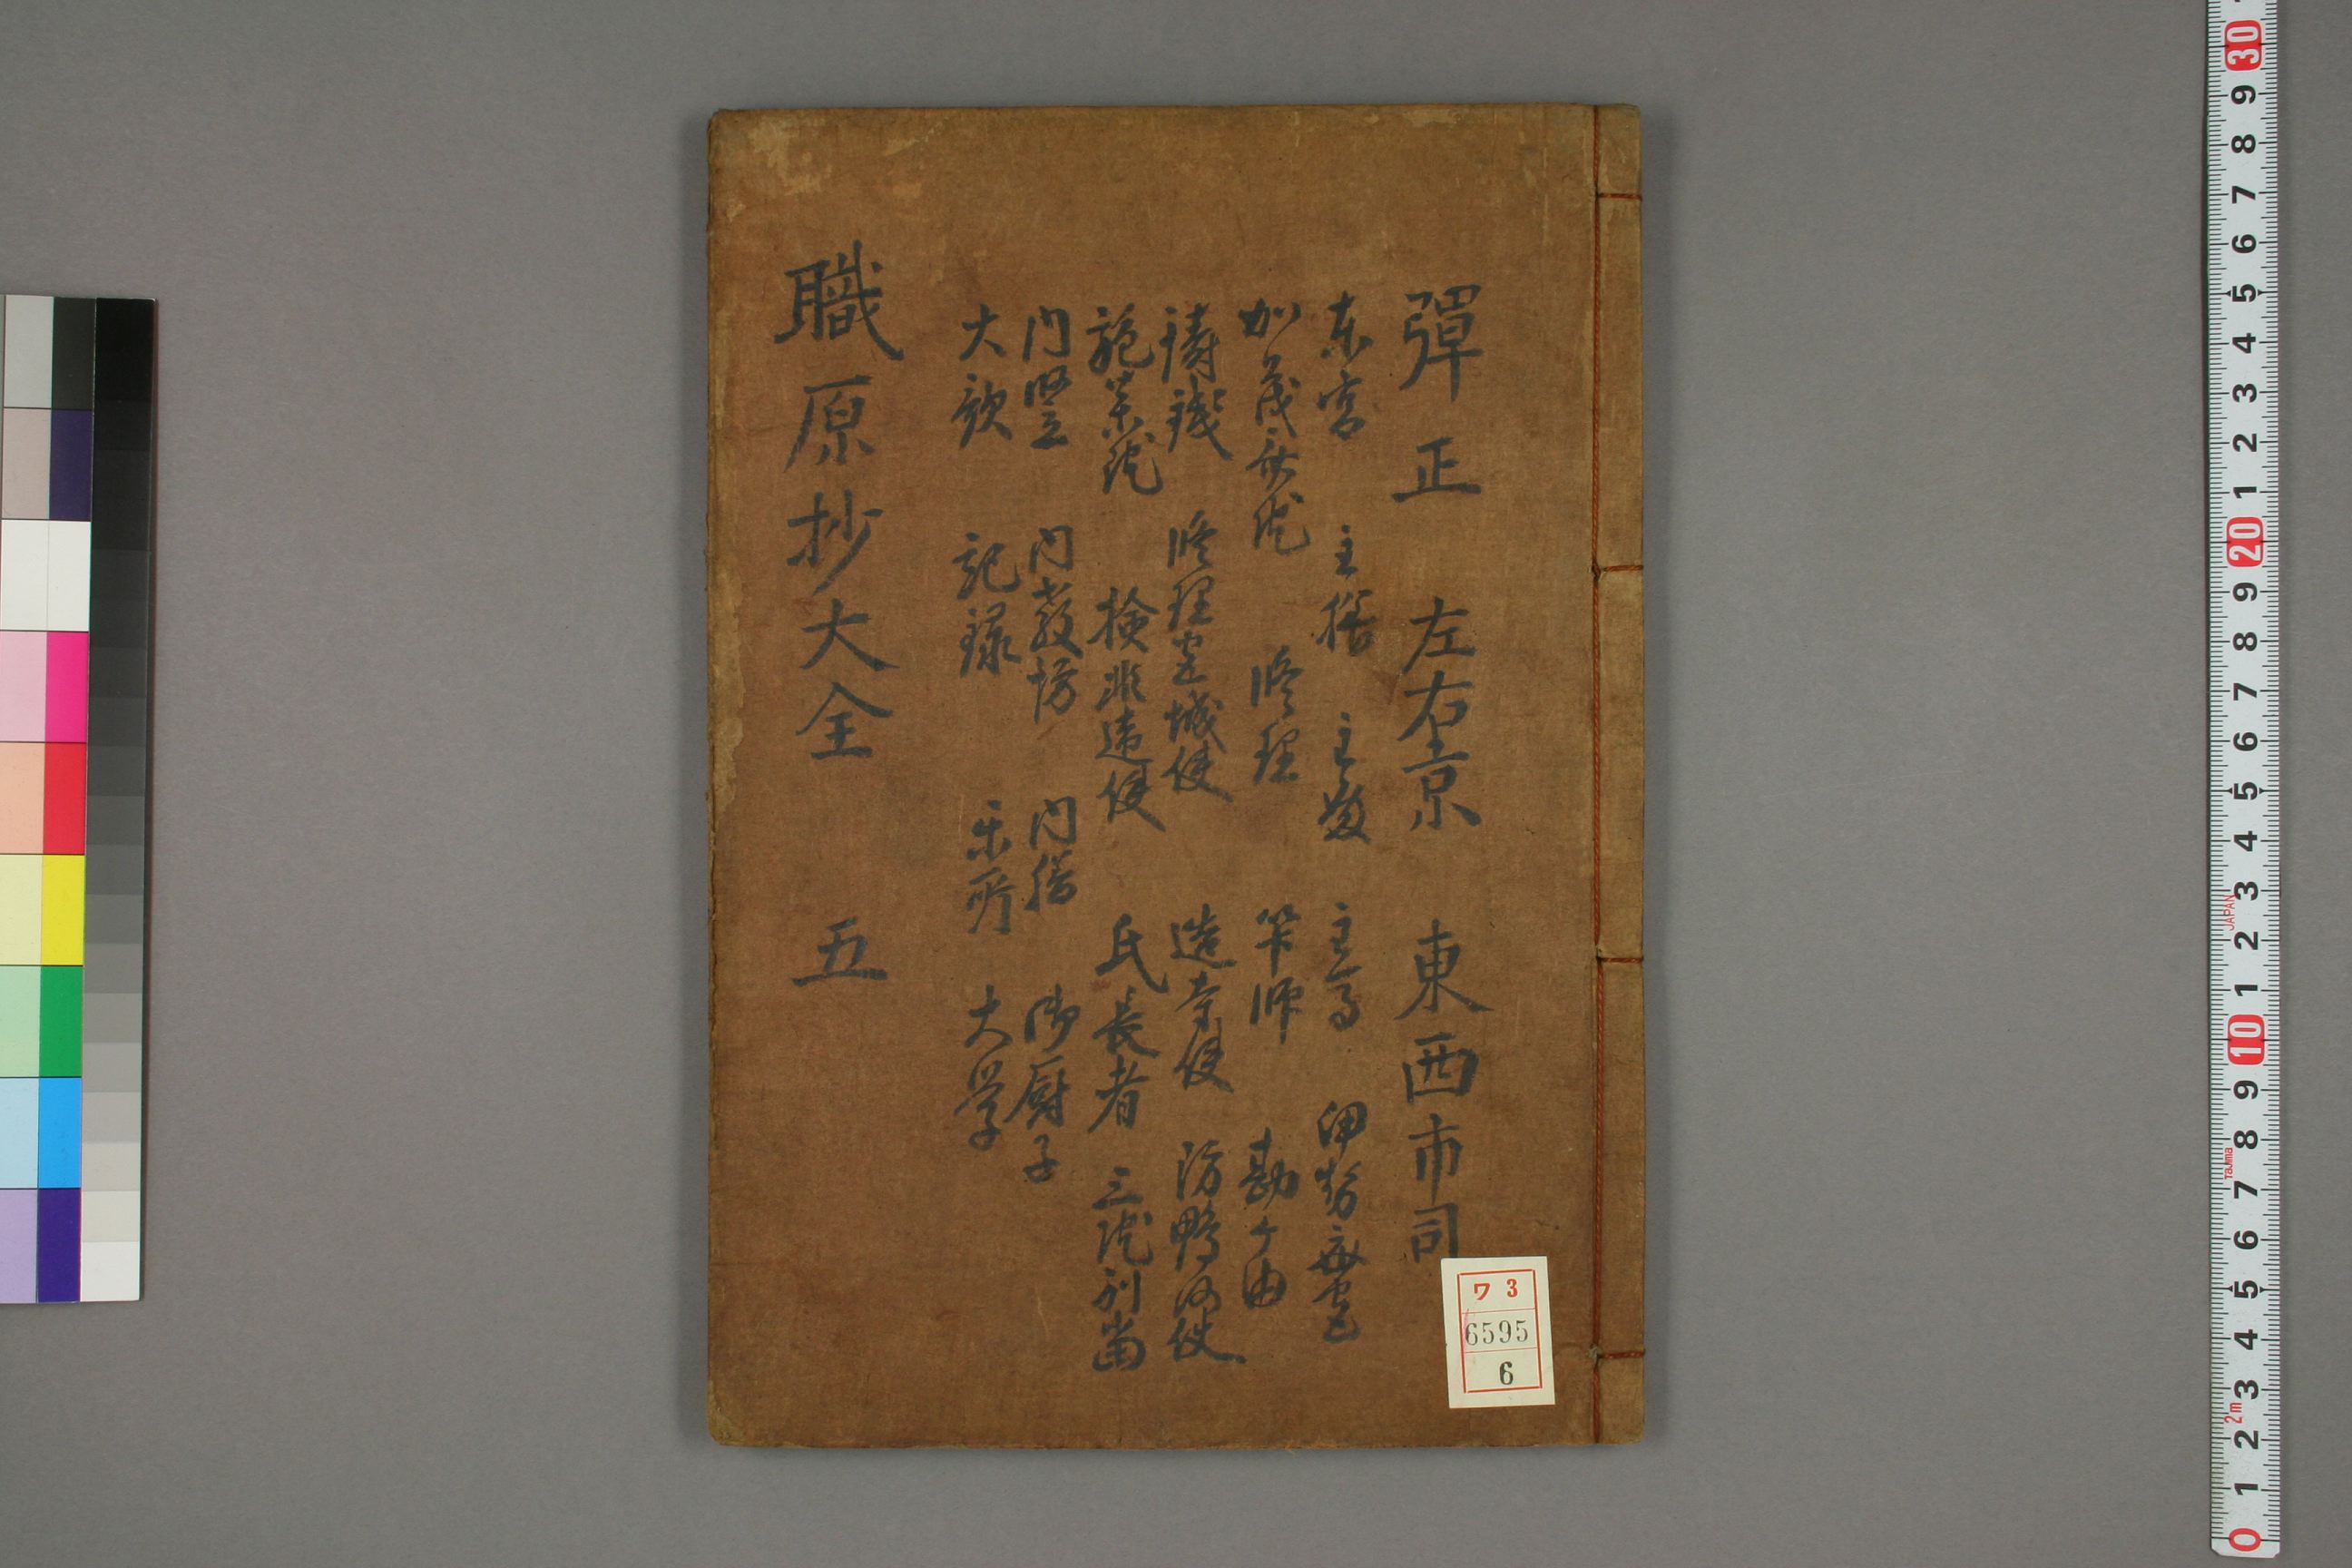 彈正 左右京 東西市司
东宮 主膳 主殿 主馬 伊勢斎宮
加茂斎院 修理 筭師 勘ケ由
鋳銭 修理宮城使 造寺使 防鴨河使
施薬院 検非違使 氏長者 三院別当
内竪 内教坊 内膳 御厨子
大歌 記録 楽所 大学
職原抄大全 五
ワ 3
6595
6
JAPAN
Tajima
2m
0 1 2 3 4 5 6 7 8 9 10 1 2 3 4 5 6 7 8 9 20 1 2 3 4 5 6 7 8 9 30